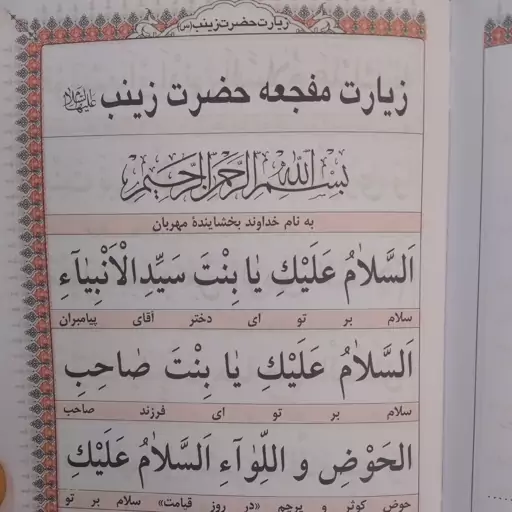 زیارت حضرت زینب(س)
زیارت مفجعه حضرت زینب علیهاالسلام
بسم الله الرحمن الرحیم
به نام خداوند بخشایندهٔ مهربان
اَلسَّلاٰمُ عَلَیْكِ یٰا بِنْتَ سَیِّدِ الْاَنْبِیٰاۤءِ
سلام بر تو ای دختر آقای پیامبران
اَلسَّلاٰمُ عَلَیْكِ یٰا بِنْتَ صٰاحِبِ
سلام بر تو ای فرزند صاحب
الحَوْضِ وَ اللِّوٰاۤءِ اَلسَّلاٰمُ عَلَیْكِ
حوض کوثر و پرچم «در روز قیامت» سلام بر تو